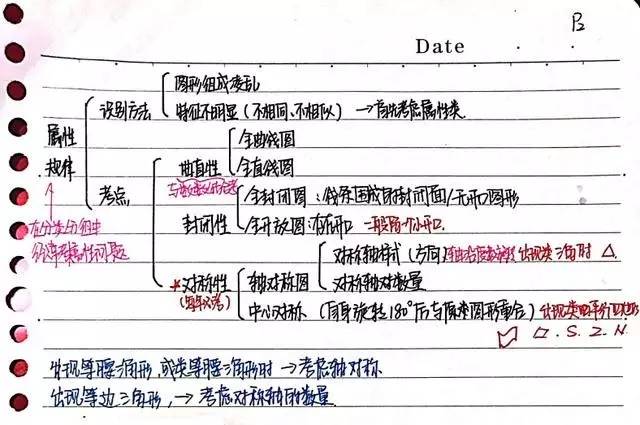 P2
Date
图形组成凌乱
识别方法
特征不明显(不相同、不相似) → 首先考虑属性类
属性
规律
全曲线图
曲直性
全直线图
考点
全封闭图:线条围成的封闭面/无开口图形
封闭性
全开放图:有开口 一般留一个小开口
在分类分组中
对称轴样式(方向) 出现类三角时 △
*对称性
轴对称图
对称轴对数量
中心对称(自身旋转180°后与原来图形重合)出现类平行四边形
▱.S.Z.N.
出现等腰三角形,或类等腰三角形时 → 考虑轴对称
出现等边三角形, → 考虑对称轴的数量